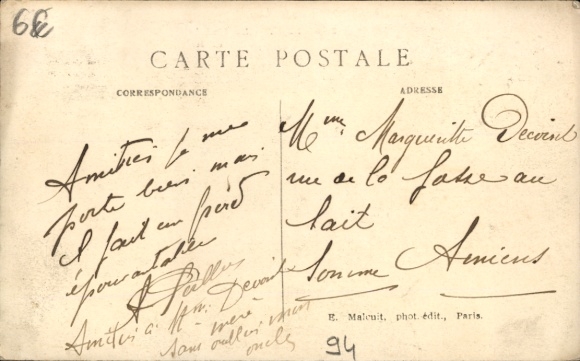 6€
CARTE POSTALE
CORRESPONDANCE
ADRESSE
Amitiés je me
porte bien mais
il fait un froid
épouvantable
Amitiés à Mme Devoist
mère
sans oublier mon
oncle
Mme Marguerite Devoist
rue de la fosse au
lait
Somme Amiens
E. Malcuit, phot. édit., Paris.
94